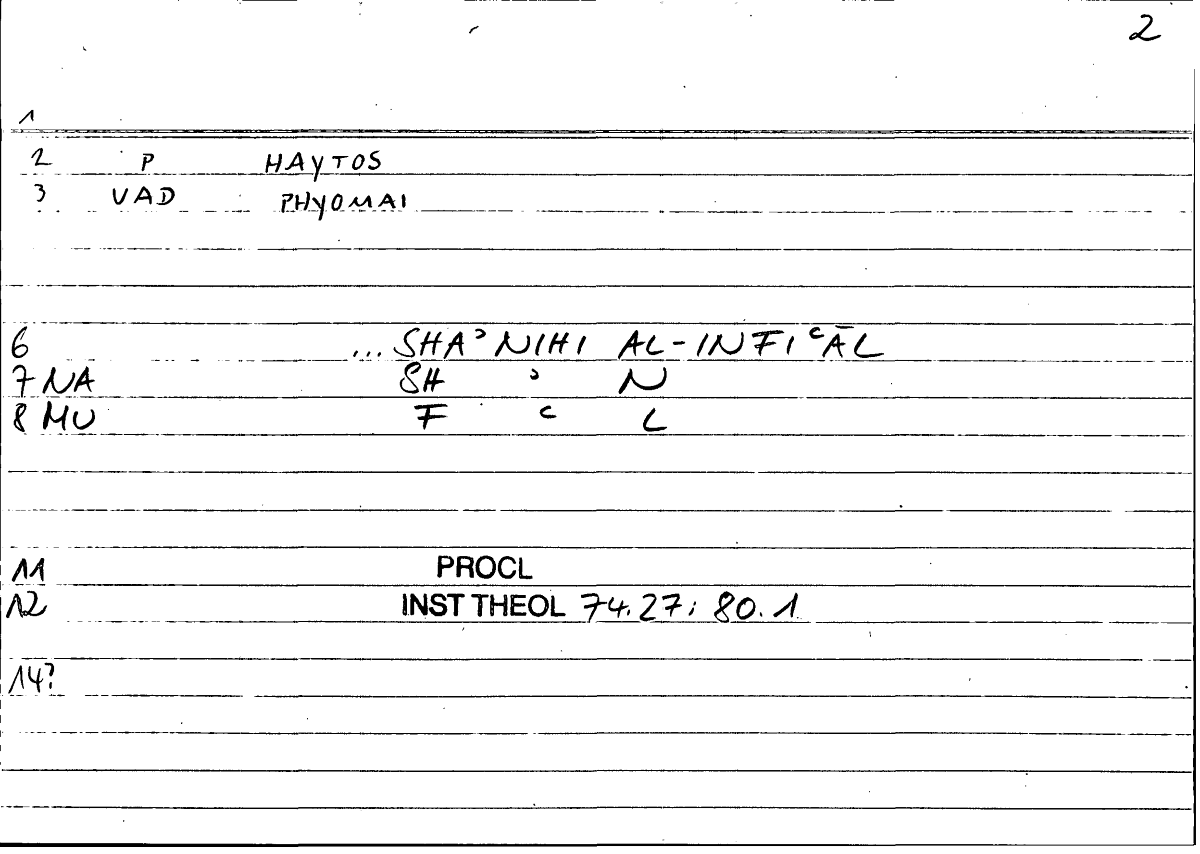 2
1
2 P HAYTOS
3 VAD PHYOMAI
6 ... SHAʾNIHI AL-INFIʿĀL
7 NA SH ʾ N
8 MU F ʿ L
11 PROCL
12 INST THEOL 74.27; 80.1
14?